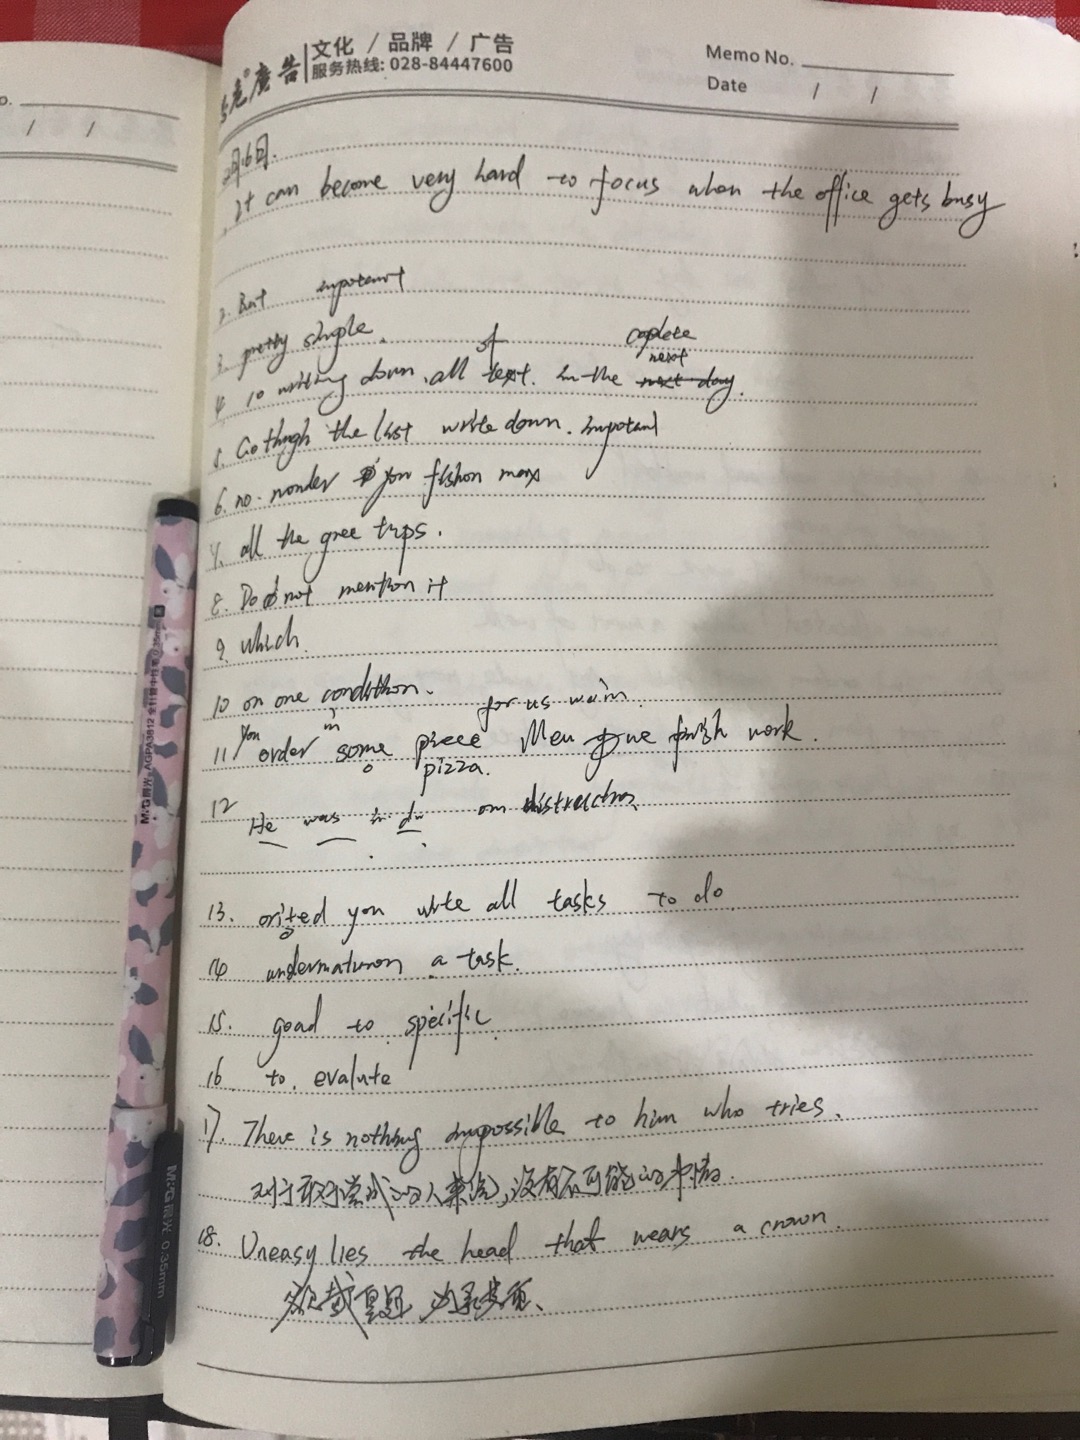 文化 / 品牌 / 广告
廣告 服务热线: 028-84447600
Memo No.
Date / /
It can become very hard to focus when the office gets busy
2. But impotant
3. pretty single.
of coplete
next
4 10 writing down. all text. in the next day.
5. Go thugh the list write down. impotant
6. no. nonder you fishon max
7. all the gree trps.
8. Do not mention it
9. which.
10 on one condition.
for us wain
11 You order in some piece Men give finish work.
pizza.
12 He was in d on distraction
13. orited you write all tasks to do
14 a task.
15. goad to specific
16. to. evalute
17. There is nothing impossible to him who tries.
对于敢于尝试的人来说,没有不可能的事情.
18. Uneasy lies the head that wears a crown.
欲戴皇冠 必承其重、
M&G晨光 AGPA3812 全针管中性笔 0.35mm
M&G晨光 0.35mm